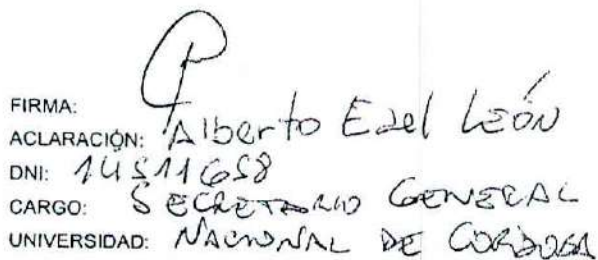 FIRMA:
ACLARACIÓN: Alberto Edel León
DNI: 14511658
CARGO: SECRETARIO GENERAL
UNIVERSIDAD: NACIONAL DE CORDOBA